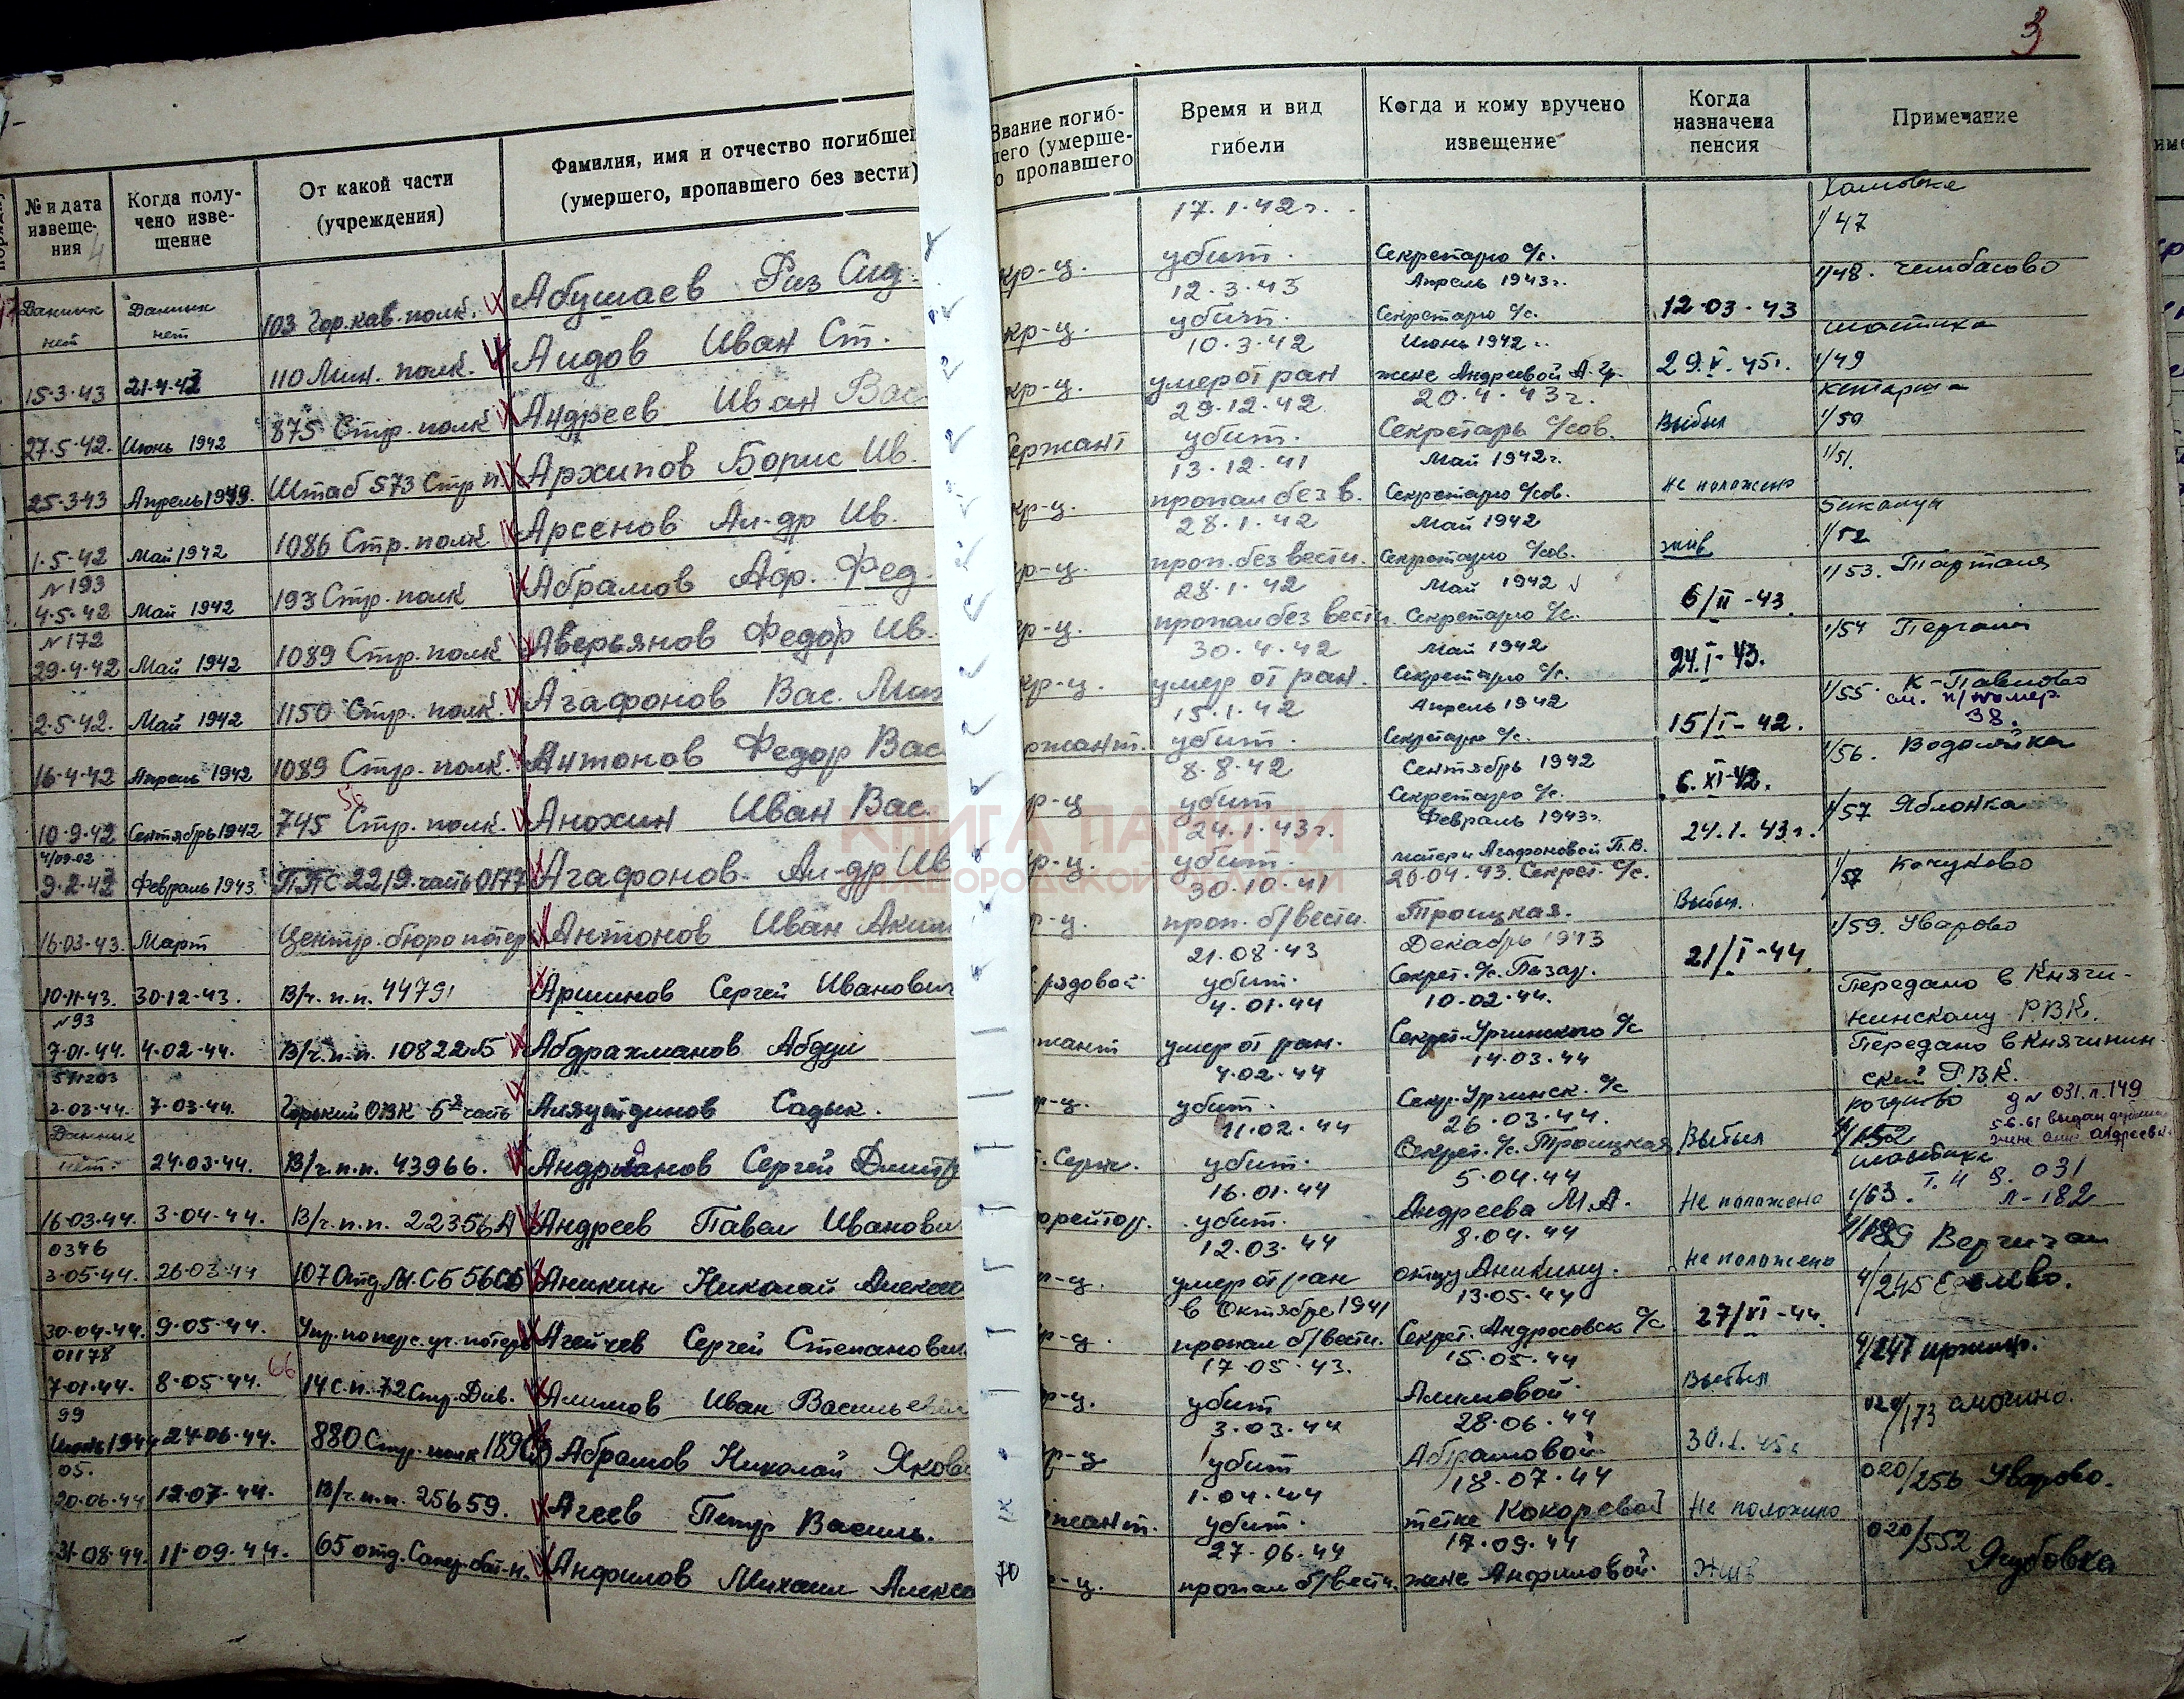 3
№ и дата извеще- ния
Когда полу- чено изве- щение
От какой части (учреждения)
Фамилия, имя и отчество погибшег (умершего, пропавшего без вести)
Звание погиб- шего (умерше- го пропавшего
Время и вид гибели
Когда и кому вручено извещение
Когда назначена пенсия
Примечание
17.1.42г.
1/47
Данных нет Данных нет 103 Гор. кав. полк. Абушаев Физ Сид. кр-ц. убит. Секретарю с/с.
12.3.43 Апрель 1943г. 1/48. Чембасово
15.3.43 21.4.43 110 Мин. полк. Аидов Иван Ст. кр-ц. убит. Секретарю с/с. 12.03.43
10.3.42 Июнь 1942 1/49
27.5.42. Июнь 1942 875 Стр. полк Андреев Иван Вас. кр-ц. умер от ран жене Андреевой А. 29.V.45г.
29.12.42 20.4.43г. 1/50
25.3.43 Штаб 573 Стр п. Архипов Борис Ив. сержант убит. Секретарь с/сов. Выбыл
13.12.41 Май 1942г. 1/51.
1.5.42 Май 1942 1086 Стр. полк Арсенов Ал-др Ив. кр-ц. пропал без в. Секретарю с/сов. Не положено
№ 193 28.1.42 Май 1942 1/52
4.5.42 Май 1942 193 Стр. полк Абрамов Адр. Фед. кр-ц. проп. без вести. Секретарю с/сов. жив 1/53.
№ 172 28.1.42 Май 1942
29.4.42 Май 1942 1089 Стр. полк Аверьянов Федор Ив. кр-ц. пропал без вести Секретарю с/с. 6/II-43. 1/54
30.4.42 Май 1942
2.5.42. Май 1942 1150 Стр. полк. Агафонов Вас. Мих кр-ц. умер от ран. Секретарю с/с. 24.I-43. 1/55 К-Павлово
15.1.42 Апрель 1942 см. п/номер 38.
16.4.42 Апрель 1942 1089 Стр. полк. Антонов Федор Вас ржант. убит. Секретарю с/с. 15/I-42. 1/56.
8.8.42 Сентябрь 1942
10.9.42 Сентябрь 1942 745 Стр. полк. Анохин Иван Вас. р-ц убит Секретарю с/с. 6.XI-42. 1/57 Яблонка
24.1.43г. Февраль 1943г.
9.2.43 Февраль 1943. ППС 2219. часть 0177 Агафонов Ал-др Ив р-ц. убит. матери Агафоновой П.В. 24.1.43г.
30.10.41 20.04.43. Секрет. с/с. Кочуково
16.03.43. Март Центр. бюро потерь Антонов Иван Аким р-ц. проп. б/вести. Троицкая. Выбыл. 1/59. Уварово
21.08.43 Декабрь 1943
10.11.43. 30.12.43. В/ч. п.п. 44791 Аршинов Сергей Иванович рядовой убит. Секрет. с/с. 21/I-44.
№93 4.01.44 10.02.44. Передано в Княги- нинскому Р.В.К.
7.01.44. 4.02.44. В/ч. п.п. 10822Б Абдрахманов Абдул жант умер от ран. Секрет. Ургинского с/с
4.02.44 14.03.44 Передано в Княгинин- ский Р.В.К.
2.03.44. 7.03.44. Горький ОВК 5я часть Аляутдинов Садык. р-ц. убит. Секр. Ургинск. с/с
Данных 11.02.44 26.03.44. д № 031. л. 149
нет. 24.03.44. В/ч. п.п. 43966. Андрианов Сергей Дмитр . Серж. убит. Секрет. с/с. Троицкая Выбыл
16.01.44 5.04.44
16.03.44. 3.04.44. В/ч. п.п. 22356А Андреев Павел Иванови орейтор. убит. Андреева М.А. Не положено 1/63. Т. 4 д. 031 л-182
0346 12.03.44 8.04.44
3.05.44. 26.03.44 107 Отд. М.СБ 56СБ Аникин Николай Алексе р-ц. умер от ран отцу Аникину. Не положено
в Октябре 1941 13.05.44 4/245
30.04.44. 9.05.44. Упр. по перс. уч. потерь Агейчев Сергей Степанович р-ц. пропал б/вести. Секрет. Андросовск с/с 27/VI-44.
01178 17.05.43. 15.05.44 4/247
7.01.44. 8.05.44. 66 14 с.п. 72 Стр. Див. Алимов Иван Васильеви р-ц. убит Алимовой. Выбыл
99 3.03.44 28.06.44 020/173
Июнь 1944 24.06.44. 880 Стр. полк 189 Абрамов Николай Якове р-ц убит Абрамовой 30.I.45г
05. 1.04.44 18.07.44 020/256 Уварово.
20.06.44 12.07.44. В/ч. п.п. 25659. Агеев Петр Василь. жант. убит. тетке Кокоревой Не положено
27.06.44 17.09.44 020/552 Якубовка
31.08.44. 11.09.44. 65 отд. Сапер. бат-н. Анфилов Михаил Алексе -ц. пропал б/вести. жене Анфиловой. Жив
КНИГА ПАМЯТИ
НИЖЕГОРОДСКОЙ ОБЛАСТИ